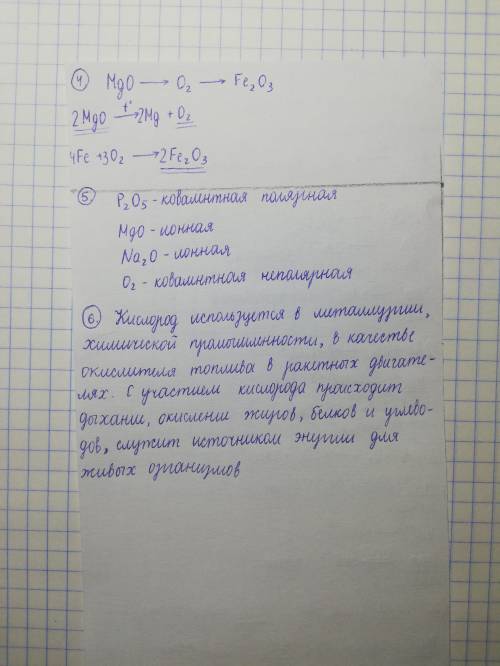 ④ MgO ⟶ O₂ ⟶ Fe₂O₃
2MgO ⟶(t°) 2Mg + O₂
4Fe +3O₂ ⟶ 2Fe₂O₃
⑤. P₂O₅ - ковалентная полярная
MgO - ионная
Na₂O - ионная
O₂ - ковалентная неполярная
⑥. Кислород используется в металлургии,
химической промышленности, в качестве
окислителя топлива в ракетных двигате-
лях. С участием кислорода происходит
дыхание, окисление жиров, белков и углево-
дов, служит источником энергии для
живых организмов